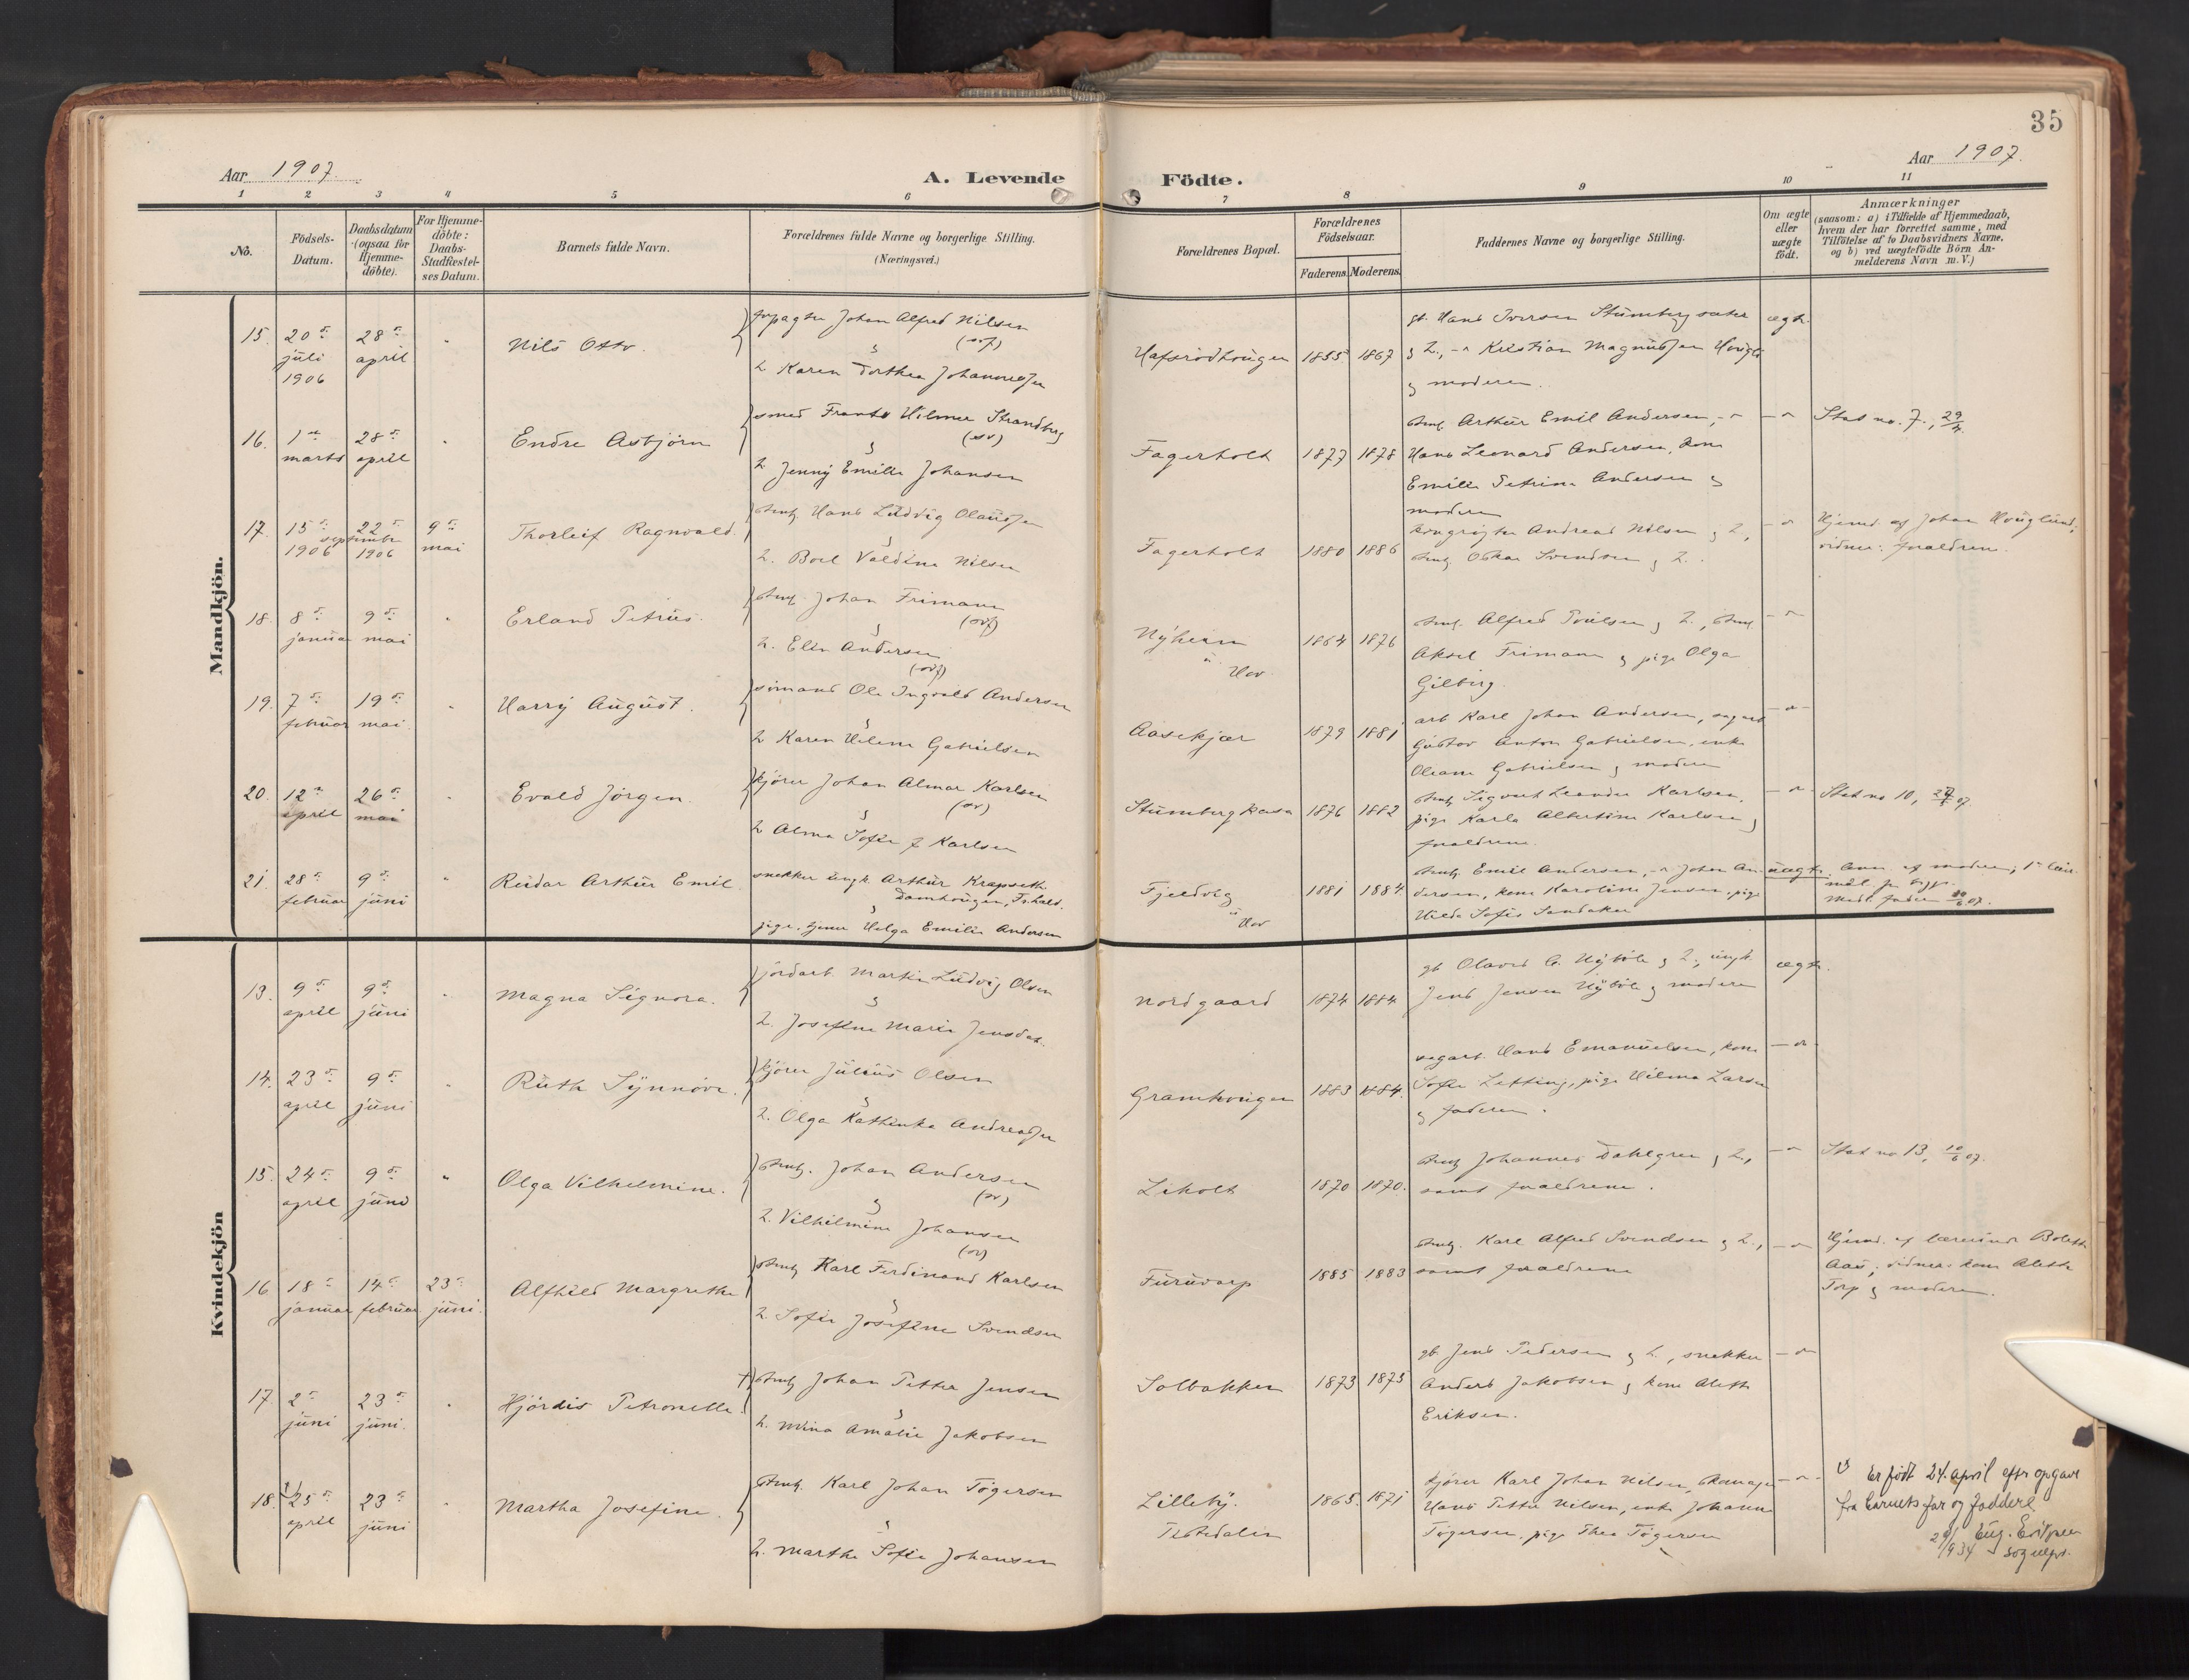 35
Aar 1907.
A. Levende Födte.
Aar 1907.
1 2 3 4 5 6 7 8 9 10 11
No.
Födsels-Datum.
Daabsdatum (ogsaa for Hjemme-döbte).
For Hjemme-döbte: Daabs-Stadfæstel-ses Datum.
Barnets fulde Navn.
Forældrenes fulde Navne og borgerlige Stilling.
(Næringsvei.)
Forældrenes Bopæl.
Forældrenes Födselsaar.
Faderens. Moderens.
Faddernes Navne og borgerlige Stilling.
Om ægte eller uægte födt.
Anmærkninger
(saasom: a) i Tilfælde af Hjemmedaab, hvem der har forrettet samme, med Tilföielse af to Daabsvidners Navne, og b) ved uægtefödte Börn An-melderens Navn m. V.)
Mandkjön.
15. 20 juli 1906 28 april Nils Otto.
forpagter Johan Alfred Nilsen
h. Karen Dorthea Johannesen
Hafsrödhougen 1855 1867
gb. Hans Iversen Stumberg
h., Kristian Magnussen
moderen.
ægte
16. 1 marts 28 april Endre Asbjörn
smed Frants Hilmer Strandberg
(sv)
h. Jenny Emilie Johansen
Fagerholt 1877 1878
Arthur Emil Andersen,
Hans Leonard Andersen, kone
Emilie Petrine Andersen
moderen
Stat no. 7, 29/4
17. 15 september 1906 22 september 1906 9 mai Thorleif Ragnvald.
Hans Ludvig Olaussen
h. Boel Valdine Nilsen
Fagerholt 1880 1886
Andreas Nilsen h.,
Oskar Svendsen h.
Hjemd. af Johan Houglund;
vidner: forældrene.
18. 8 januar 9 mai Erland Petrus.
Johan Frimann
h. Elin Andersen
Nyheim u. Hov 1864 1876
Alfred Poulsen h.,
Aksel Frimann pige Olga
Gilberg.
19. 7 februar 19 mai Harry August.
sömand Ole Ingvald Andersen
h. Karen Helene Gabrielsen
Aasekjær 1879 1881
arb Karl Johan Andersen, sagarb
Gustav Anton Gabrielsen, enke
Oleane Gabrielsen moderen
20. 12 april 26 mai Evald Jörgen.
kjörer Johan Almar Karlsen
(sv)
h Alma Sofie Karlsen
1876 1882
Sigvart Leander Karlsen,
pige Karla Albertine Karlsen
forældrene.
Stat no 10, 07.
21. 28 februar 9 juni Reidar Arthur Emil
snekker ungk. Arthur Krapseth
Damhougen, Fr.hald.
pige, Helga Emilie Andersen
Fjeldvig u Hov 1881 1884
Emil Andersen, Johan An-
dersen, kone Karoline Jensen, pige
Hilda Sofie Sandaker
uægte.
Anm. af moderen;
Kvindekjön
13. 9 april 9 juni Magna Signora.
jordarb. Martin Ludvig Olsen
h. Josefine Marie Jensdat.
Nordgaard 1874 1884
gb Olavus Nyböle h., ungk.
Jens Jensen Nyböle moderen
ægte.
14. 23 april 9 juni Ruth Synnöve.
kjörer Julius Olsen
h. Olga Kathinka Andreassen
Gramhougen 1883 1884.
sagarb. Hans Emanuelsen, kone
Sofie Letting, pige Hilma Larsen
faderen.
15. 24 april 9 juni Olga Vilhelmine.
Johan Andersen
(sv)
h. Vilhelmine Johansen
(sv)
Liholt 1870 1870.
Johannes Dahlgren h.,
samt forældrene.
Stat no 13, 10/6 07.
16 18 januar 14 februar. 23 juni. Alfhild Margrethe
Karl Ferdinand Karlsen
h. Sofie Josefine Svendsen
Furuvarp 1885 1883
Karl Alfred Svendsen h.,
samt forældrene
Hjemd. af lærerinde Bolette
Aas; vidner: kone Alette
Torp moderen.
17. 2 juni 23 juni. Hjördis Petronelle.
Johan Petter Jensen
h. Mina Amalie Jakobsen
Solbakken 1873 1875
gb. Jens Pedersen h., snekker
Anders Jakobsen kone Alette
Eriksen.
18. 25 april 23 juni Martha Josefine.
Karl Johan Tögersen
h. Marthe Sofie Johansen
Lilleby. Tistedalen 1865. 1871
kjörer Karl Johan Nilsen,
Hans Petter Nilsen, enke Johanne
Tögersen, pige Thea Tögersen
Er født 24. april eftr opgave
fra barnets far og faddere
1934 sogneprt.